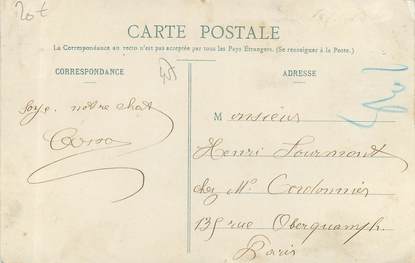 20t
CARTE POSTALE
La Correspondance au recto n'est pas acceptée par tous les Pays Étrangers. (Se renseigner à la Poste.)
CORRESPONDANCE
ADRESSE
notre chat
Monsieur
Henri Lourmont
chez Mr. Cordonnier
135 rue Oberquamph.
Paris